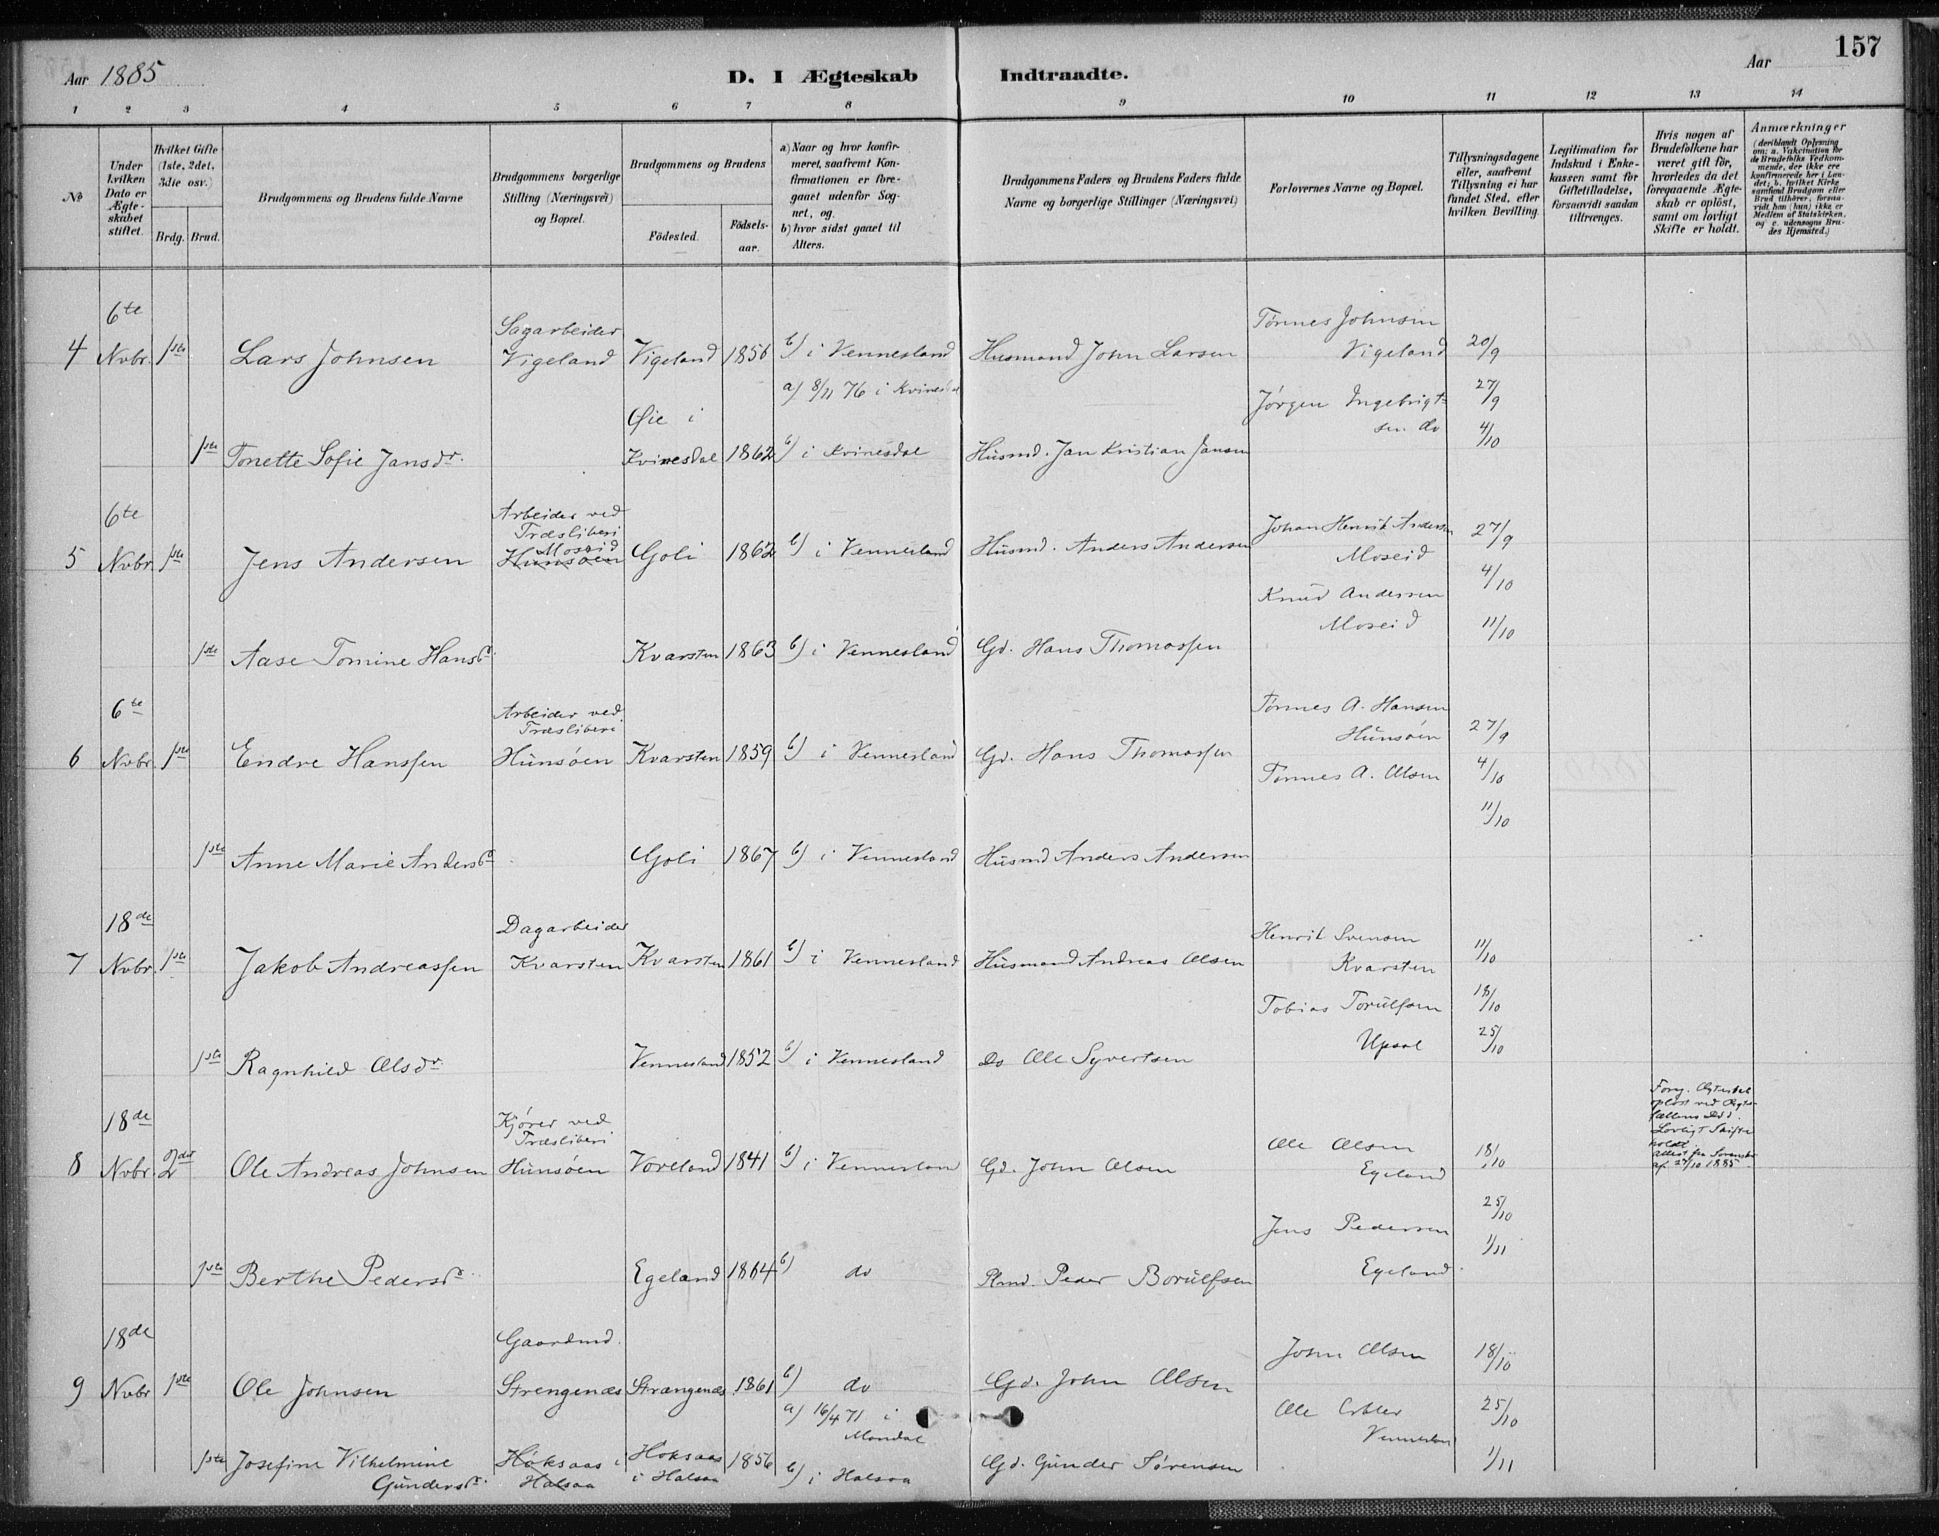 157
Aar 1885
D. I Ægteskab Indtraadte.
Aar
1 2 3 4 5 6 7 8 9 10 11 12 13 14
№
Under hvilken Dato er Ægteskabet stiftet.
Hvilket Gifte (1ste, 2det, 3die osv.)
Brdg. Brud.
Brudgommens og Brudens fulde Navne
Brudgommens borgerlige Stilling (Næringsvei) og Bopæl.
Brudgommens og Brudens
Födested. Födsels-aar.
a) Naar og hvor konfirmeret, saafremt Konfirmationen er foregaaet udenfor Sognet, og
b) hvor sidst gaaet til Alters.
Brudgommens Faders og Brudens Faders fulde Navne og borgerlige Stillinger (Næringsvei)
Forlovernes Navne og Bopæl.
Tillysningsdagene eller, saafremt Tillysning ei har fundet Sted, efter hvilken Bevilling.
Legitimation for Indskud i Enkekassen samt for Giftetilladelse, forsaavidt saadan tiltrænges.
Hvis nogen af Brudefolkene har været gift för, hvorledes da det foregaaende Ægteskab er oplöst, samt om lovligt Skifte er holdt.
Anmærkninger (deriblandt Oplysning om: a. Vakcination för de Brudefolks Vedkommende, der ikke ere konfirmerede her i Landet; b. hvilket Kirkesamfund Brudgom eller Brud tilhörer, forsaavidt han (hun) ikke er Medlem af Statskirken, og c. udensogns Brudes Hjemsted.)
4 6te Nvbr. 1ste Lars Johnsen Sagarbeider Vigeland Vigeland 1856 b) i Vennesland Husmand John Larsen Tønnes Johnsen Vigeland 20/9
a) 8/11 76 i Kvinesdal Jørgen Ingebrigtsen do 27/9
1ste Tonette Sofie Jansdr. Øie i Kvinesdal 1862 b) i Kvinesdal Husmd. Jan Kristian Jansen 4/10
5 6te Nvbr. 1ste Jens Andersen Arbeider ved Træsliberi Moseid Hunsøen Goli 1862 b) i Vennesland Husmd. Anders Andersen Johan Henrik Andersen Moseid 27/9
Knud Andersen Moseid 4/10
1ste Aase Tomine Hansdr. Kvarsten 1863 b) i Vennesland Gd. Hans Thomassen 11/10
6 6te Nvbr. 1ste Endre Hanssen Arbeider ved Træsliberi Hunsøen Kvarsten 1859 b) i Vennesland Gd. Hans Thomassen Tønnes A. Hansen Hunsøen 27/9
Tønnes A. Olsen 4/10
11/10
1ste Anne Marie Andersdr. Goli 1867 b) i Vennesland Husmd Anders Andersen
7 18de Nvbr. 1ste Jakob Andreassen Dagarbeider Kvarsten Kvarsten 1861 b) i Vennesland Husmand Andreas Olsen Henrik Svensen Kvarsten 11/10
Tobias Torulfsen Upsal 18/10
1ste Ragnhild Olsdr. Vennesland 1852 b) i Vennesland Do Ole Syvertsen 25/10
8 18de Nvbr. 2det Ole Andreas Johnsen Kjører ved Træsliberi Hunsøen Voreland 1841 b) i Venneslan Gd. John Olsen Ole Olsen Egeland 18/10
Forrg. Ægteskab opløst ved Ægtefællens Død. Lovligt Skifte holdt. Attest fra af 27/10 1885
Jens Pedersen Egeland 25/10
1ste Berthe Pedersdr. Egeland 1864 b) do Plmd. Peder Borulfsen 1/11
9 18de Nvbr 1ste Ole Johnsen Gaardmd. Strengenæs Strængenæs 1861 b) do Gd. John Olsen John Olsen 18/10
a) 16/4 71 i Mandal Ole Vennesland 25/10
1ste Josefine Vilhelmine Gundersdr. Høksaas i Halsaa Høksaas i Halsaa 1856 b) i Halsaa Gd. Gunder Sørensen 1/11